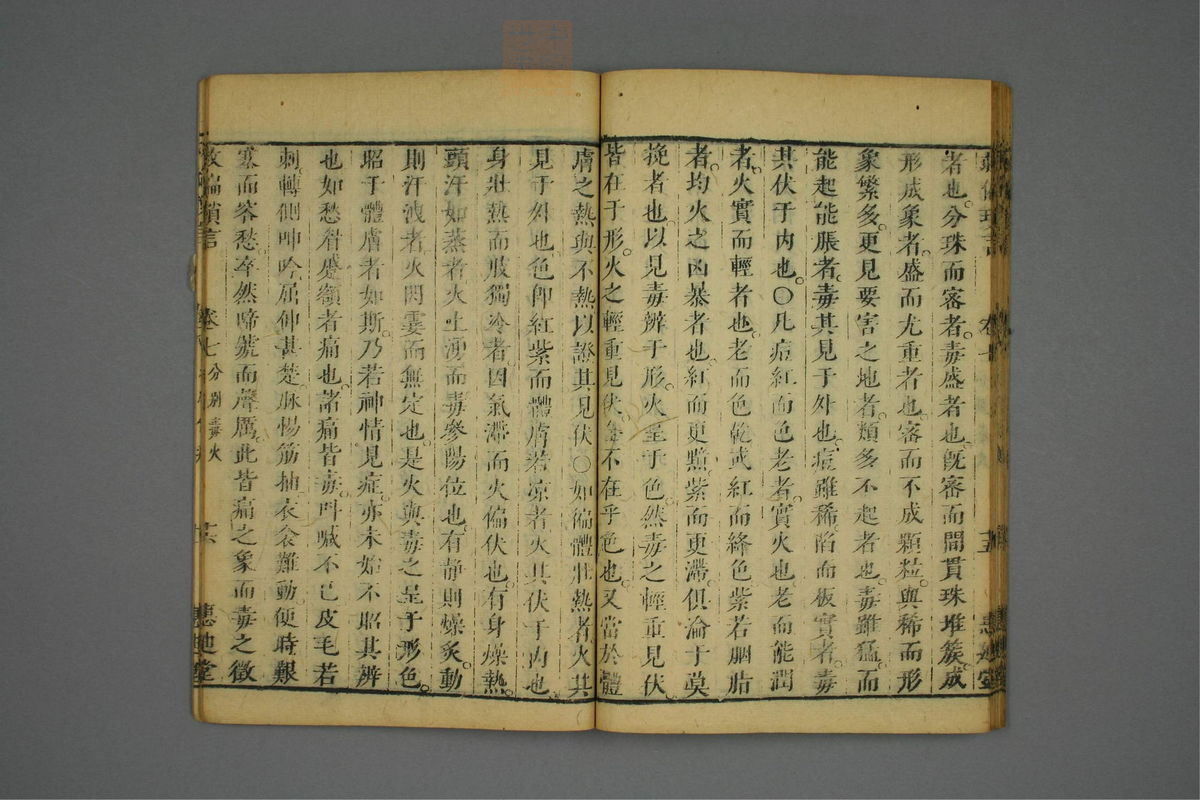 者也。分珠而密者。毒盛者也。既密而間貫珠堆簇。成
形成象者。盛而尤重者也。密而不成顆粒。與稀而形
象繁多。更見要害之地者。類多不起者也。毒雖猛。而
能起能脹者。毒其見于外也。痘雖稀。陷而板實者。毒
其伏于内也。〇凡痘紅而色老者。實火也。老而能潤
者。火實而輕者也。老而色乾。或紅而絳色。紫若胭脂
者。均火之凶暴者也。紅而更黯。紫而更滯。俱淪于莫
挽者也。以見毒辨于形。火呈于色。然毒之輕重見伏
皆在于形。火之輕重見伏。全不在乎色也。又當於體
膚之熱與不熱以證其見伏〇如徧體壯熱者火其
見于外也色卽紅紫而體膚若凉者火其伏于内也
身壯熱而肢獨冷者因氣滯而火偏伏也。有身燥熱。
頭汗如蒸者。火上湧而毒參陽位也。有静則燥炙。動
則汗洩者。火閃霎而無定也。是火與毒之呈于形色。
昭于體膚者如斯。乃若神情見症。亦未始不昭其辨
也如愁眉蹙額者痛也。諸痛皆毒。叫喊不已皮毛若
刺。轉側呻吟屈伸甚楚。脉惕筋抽。衣衾難動。便時艱
澁而容愁。卒然啼號而聲厲。此皆痛之象而毒之徵
救偏瑣言 卷七 分別毒火 十六 惠迪堂